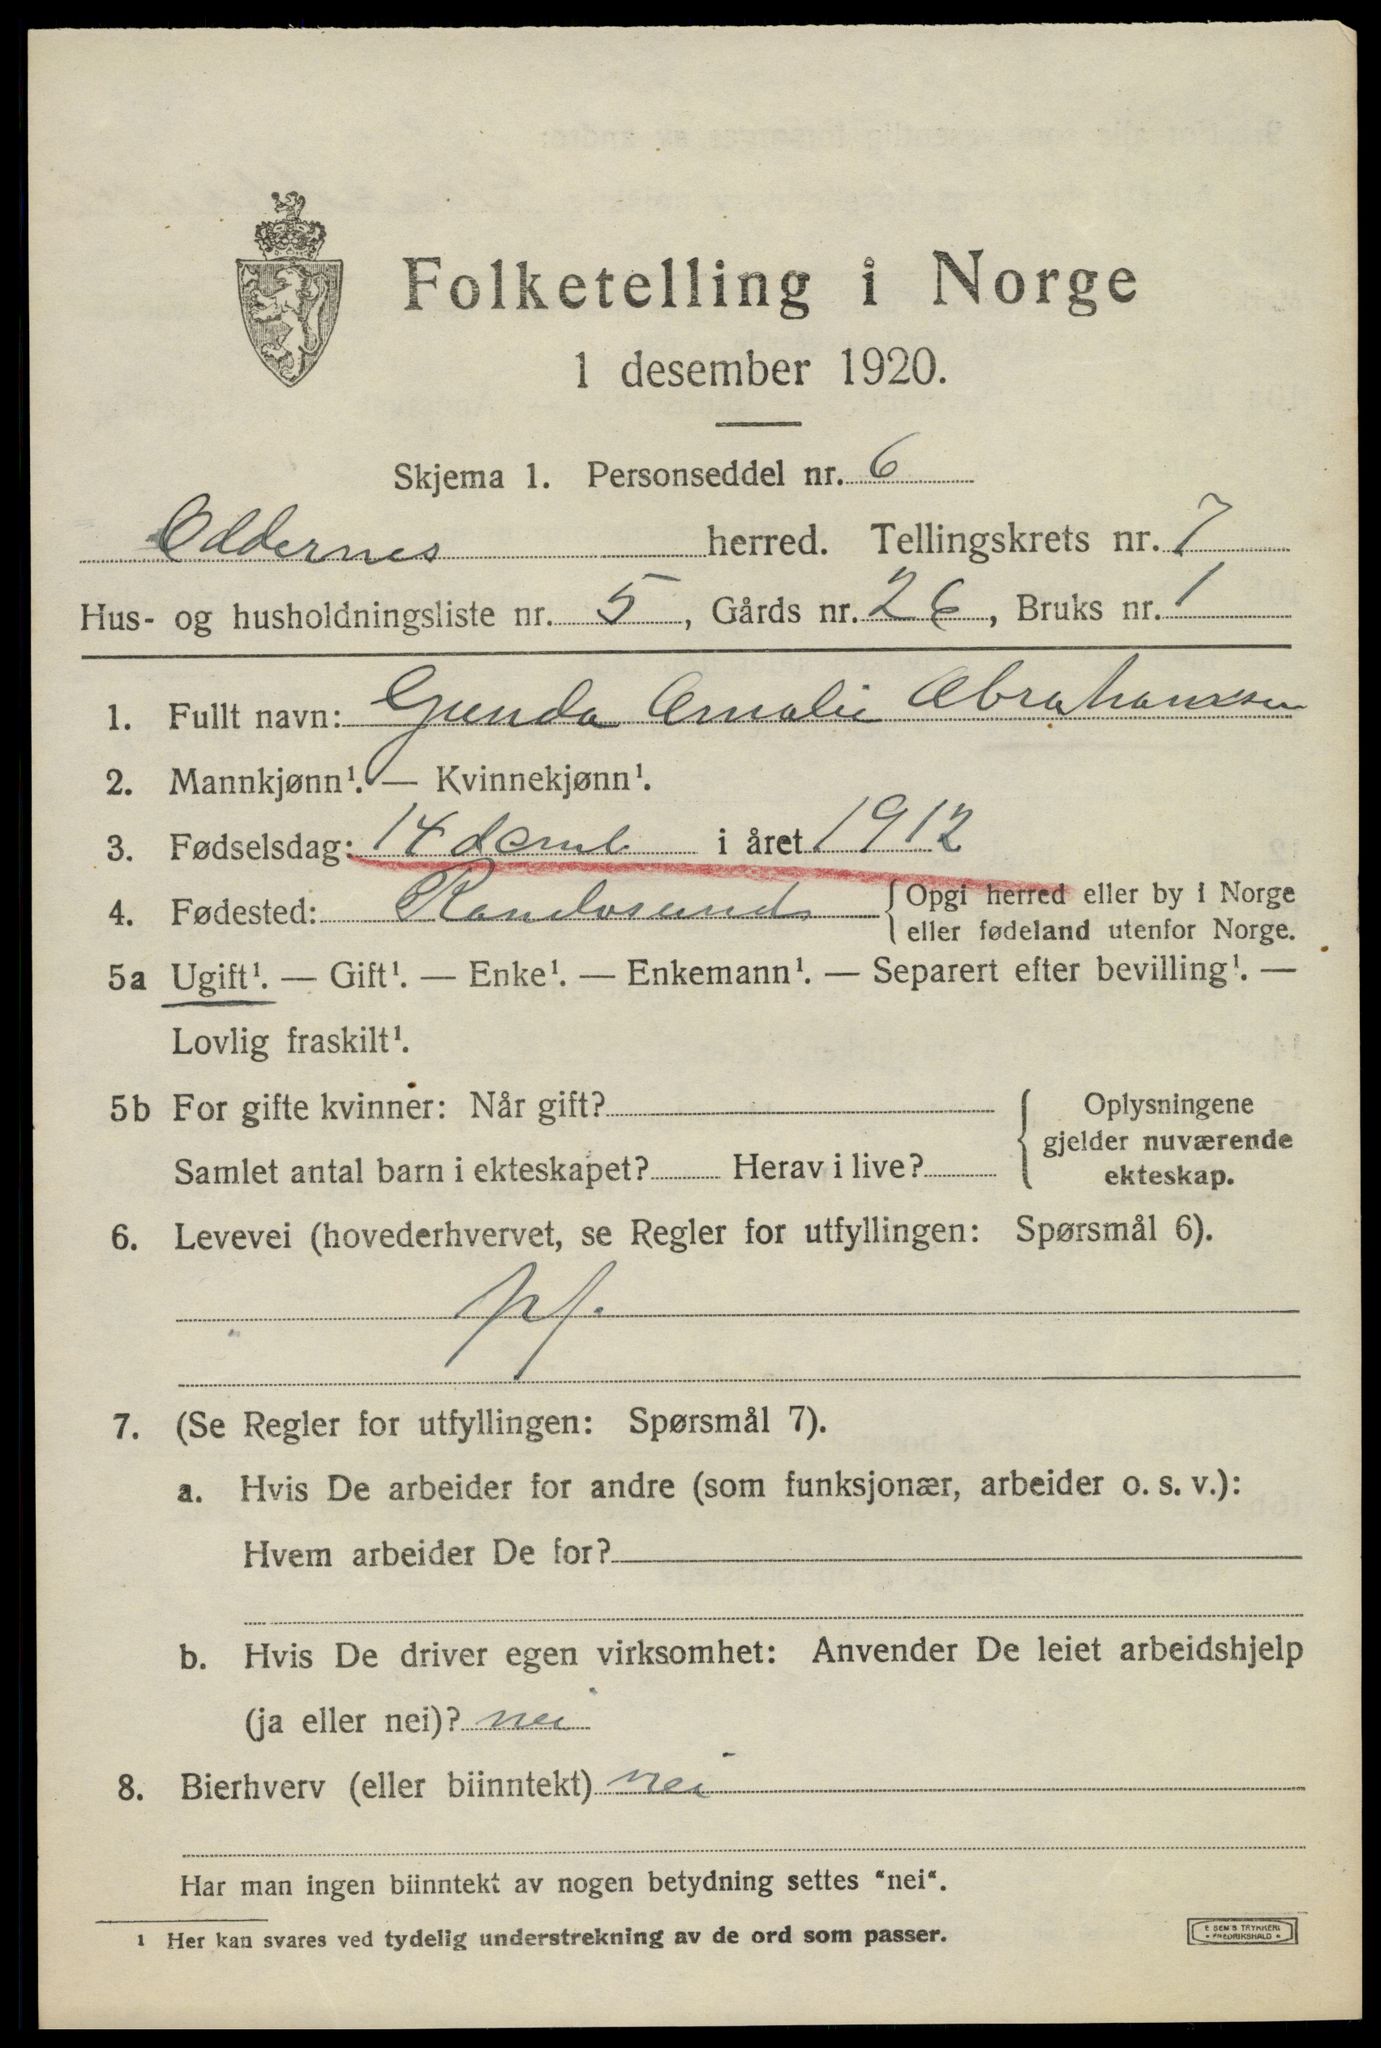 Folketelling i Norge
1 desember 1920.
Skjema 1. Personseddel nr. 6
Oddernes herred. Tellingskrets nr. 7
Hus- og husholdningsliste nr. 5, Gårds nr. 26, Bruks nr. 1
1. Fullt navn: Gunda Amalie Abrahamsen
2. Mannkjønn¹. — Kvinnekjønn¹.
3. Fødselsdag: 14 i året 1912
4. Fødested: Randøsund {Opgi herred eller by i Norge
eller fødeland utenfor Norge.
5a Ugift¹. — Gift¹. — Enke¹. — Enkemann¹. — Separert efter bevilling¹. —
Lovlig fraskilt¹.
5b For gifte kvinner: Når gift? { Oplysningene
gjelder nuværende
Samlet antal barn i ekteskapet? Herav i live? ekteskap.
6. Levevei (hovederhvervet, se Regler for utfyllingen: Spørsmål 6).
7. (Se Regler for utfyllingen: Spørsmål 7).
a. Hvis De arbeider for andre (som funksjonær, arbeider o. s. v.):
Hvem arbeider De for?
b. Hvis De driver egen virksomhet: Anvender De leiet arbeidshjelp
(ja eller nei)? nei
8. Bierhverv (eller biinntekt) nei
Har man ingen biinntekt av nogen betydning settes "nei".
1 Her kan svares ved tydelig understrekning av de ord som passer.
E SEM'S TRYKKERI
• FREDRIKSHALD •